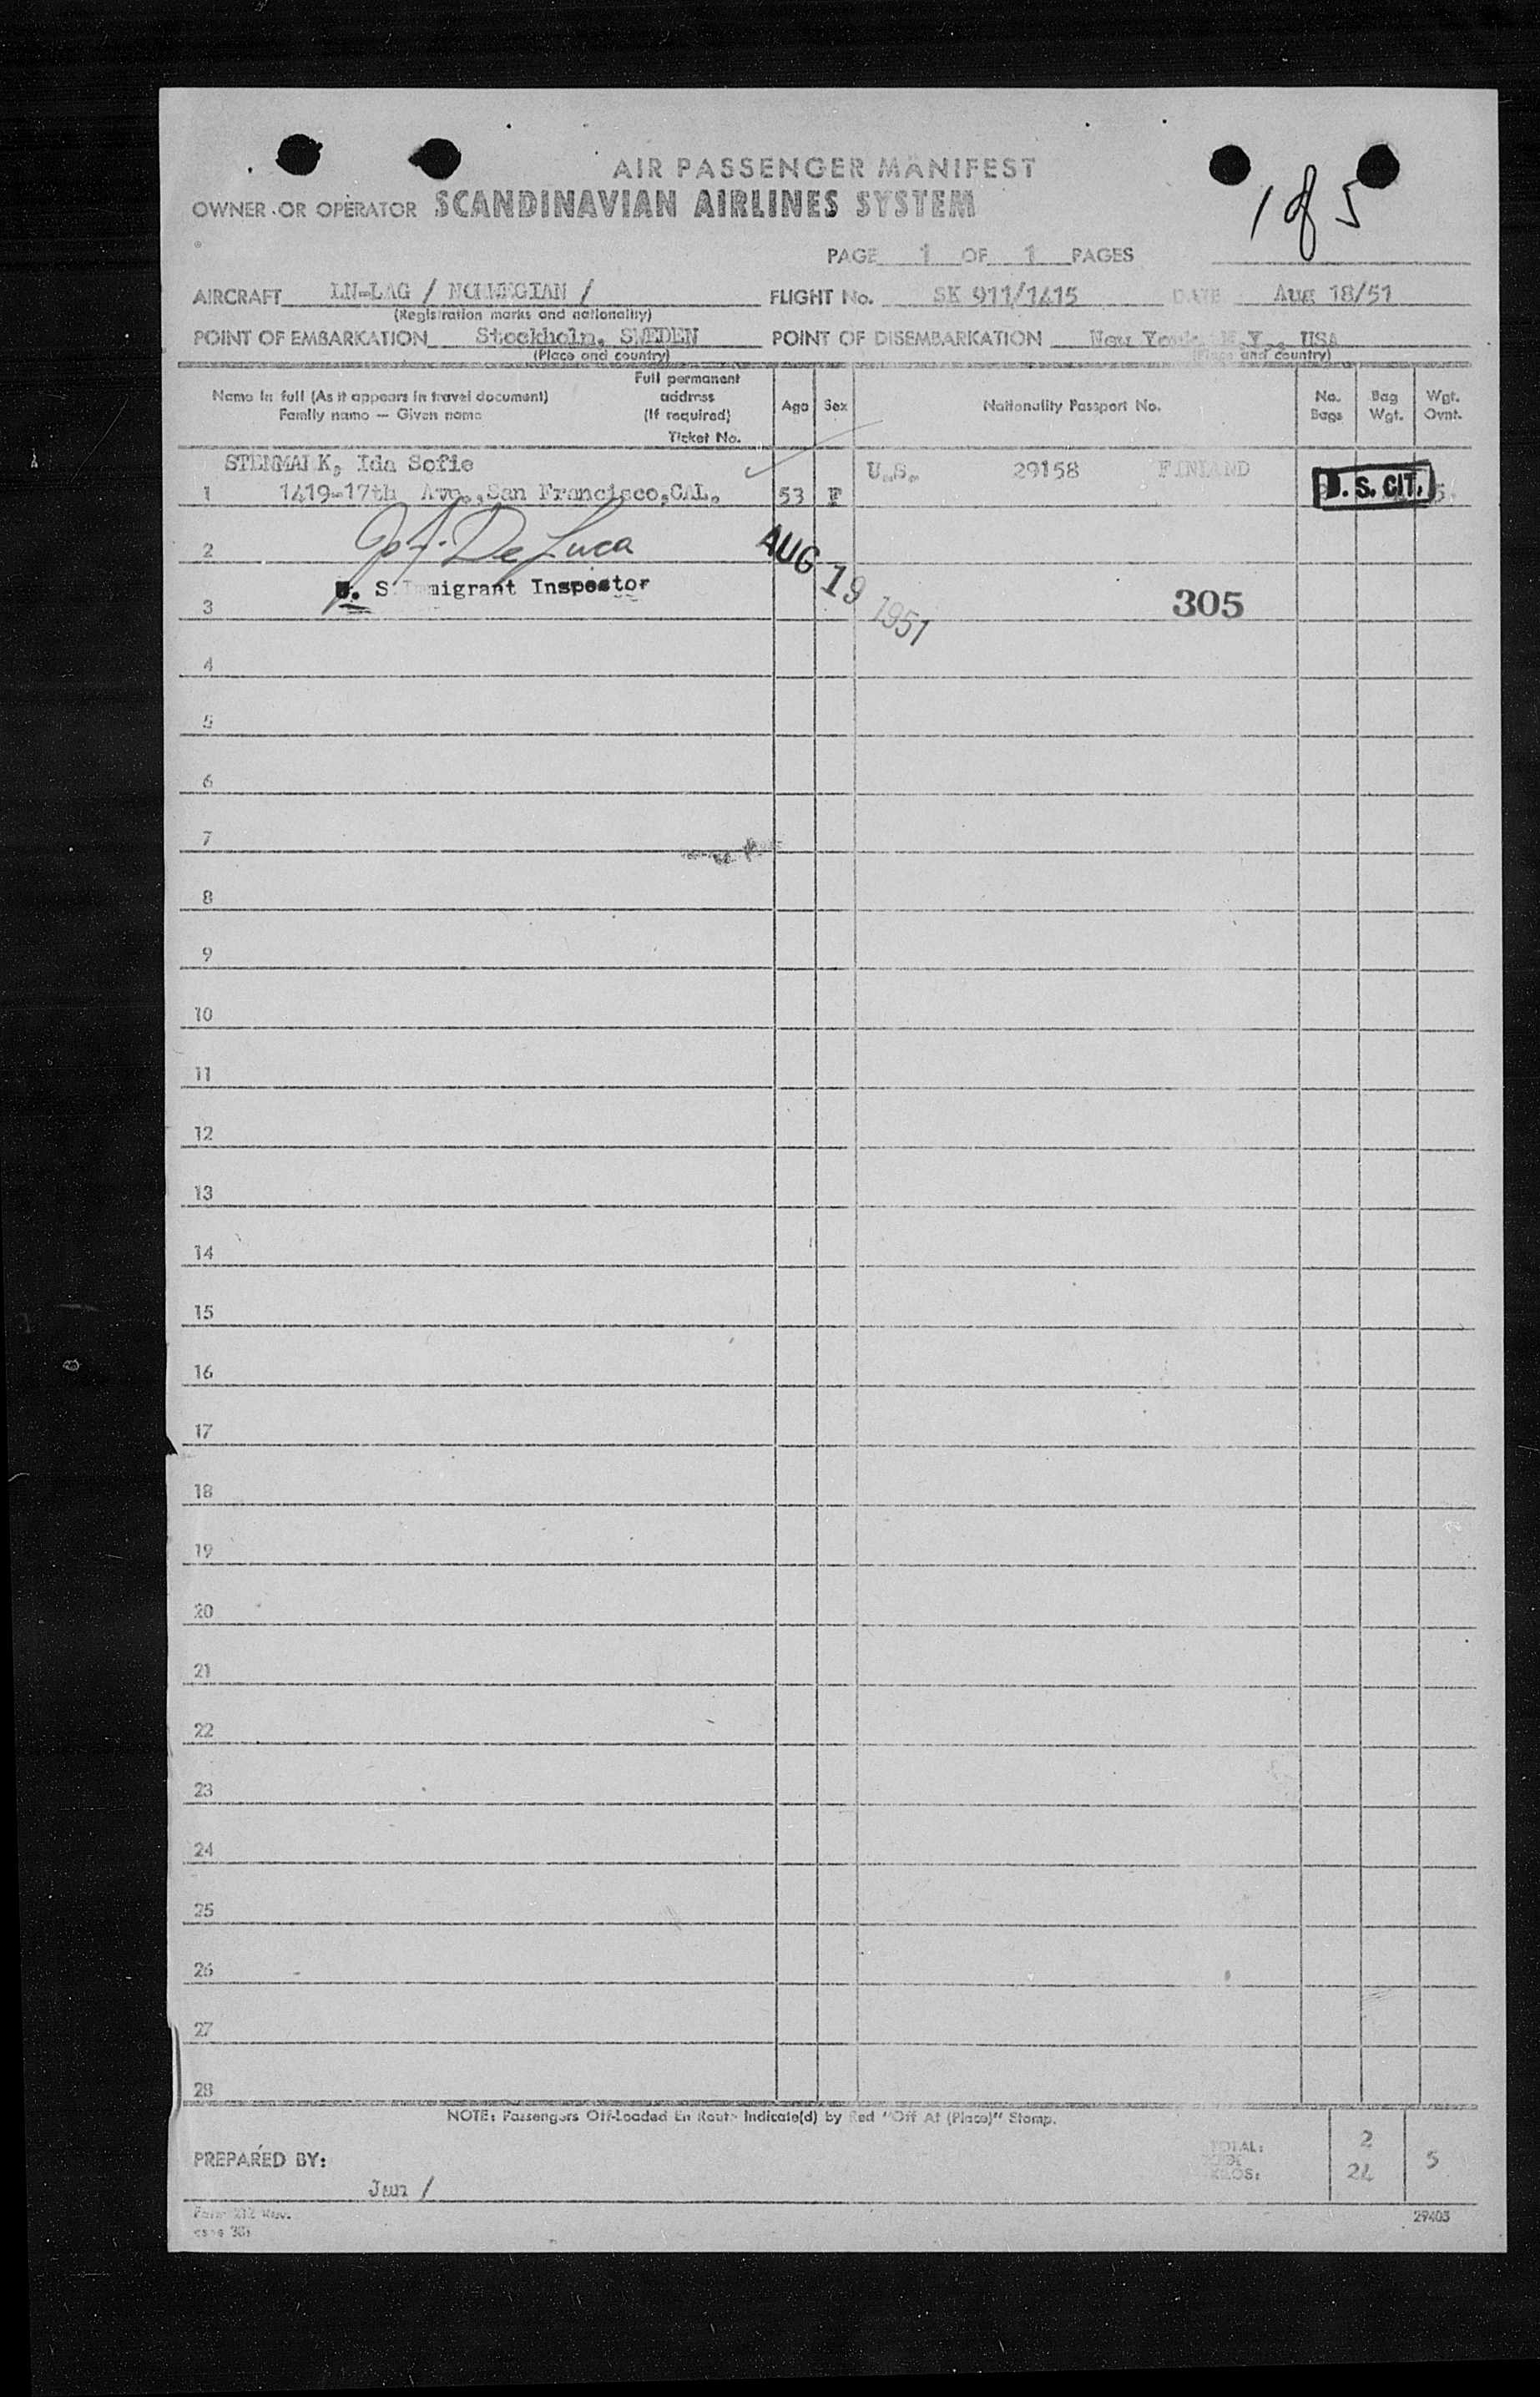 AIR PASSENGER MANIFEST
OWNER OR OPERATOR SCANDINAVIAN AIRLINES SYSTEM
1 of 5
PAGE 1 OF 1 PAGES
AIRCRAFT LN-LAG / NORWEGIAN / FLIGHT No. SK 911/1415 DATE Aug 18/51
(Registration marks and nationality)
POINT OF EMBARKATION Stockholm, SWEDEN POINT OF DISEMBARKATION New York, N.Y., USA
(Place and country) (Place and country)
Name in full (As it appears in travel document)
Family name — Given name
Full permanent
address
(If required)
Ticket No.
Age Sex Nationality Passport No. No.
Bags Bag
Wgt. Wgt.
Ovnt.
STENMARK, Ida Sofie U.S. 29158 FINLAND
1 1419-17th Ave.,San Francisco,CAL. 53 F U. S. CIT. 5
2 De Luca AUG 19 1951
U. S. Immigrant Inspector
3 305
4
5
6
7
8
9
10
11
12
13
14
15
16
17
18
19
20
21
22
23
24
25
26
27
28
NOTE: Passengers Off-Loaded En Route Indicate(d) by Red "Off At (Place)" Stamp.
PREPARED BY: TOTAL: 2
KILOS: 24 5
Jun /
Form 212 Rev.
29403